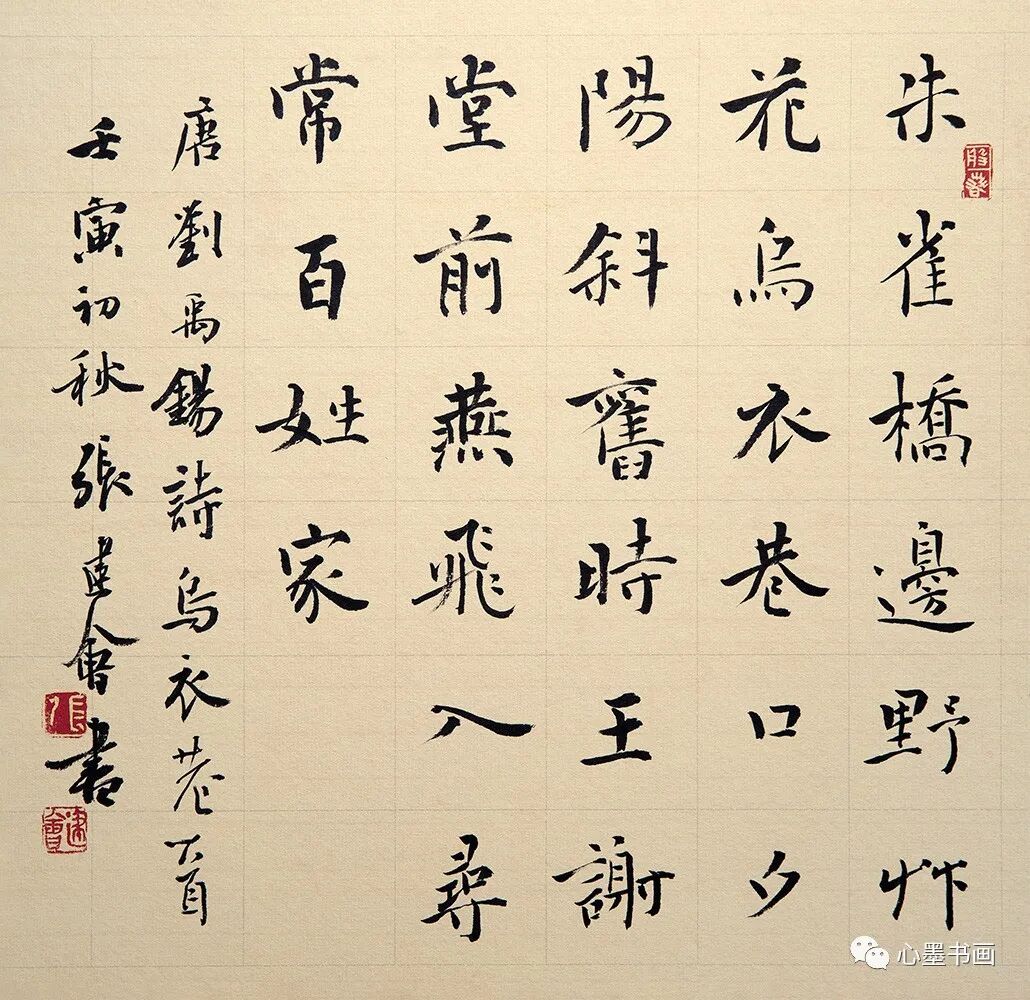 朱雀橋邊野艸
花烏衣巷口夕
陽斜舊時王謝
堂前燕飛入尋
常百姓家
唐劉禹錫詩烏衣巷一首
壬寅初秋張建會書
張
建會
心墨书画